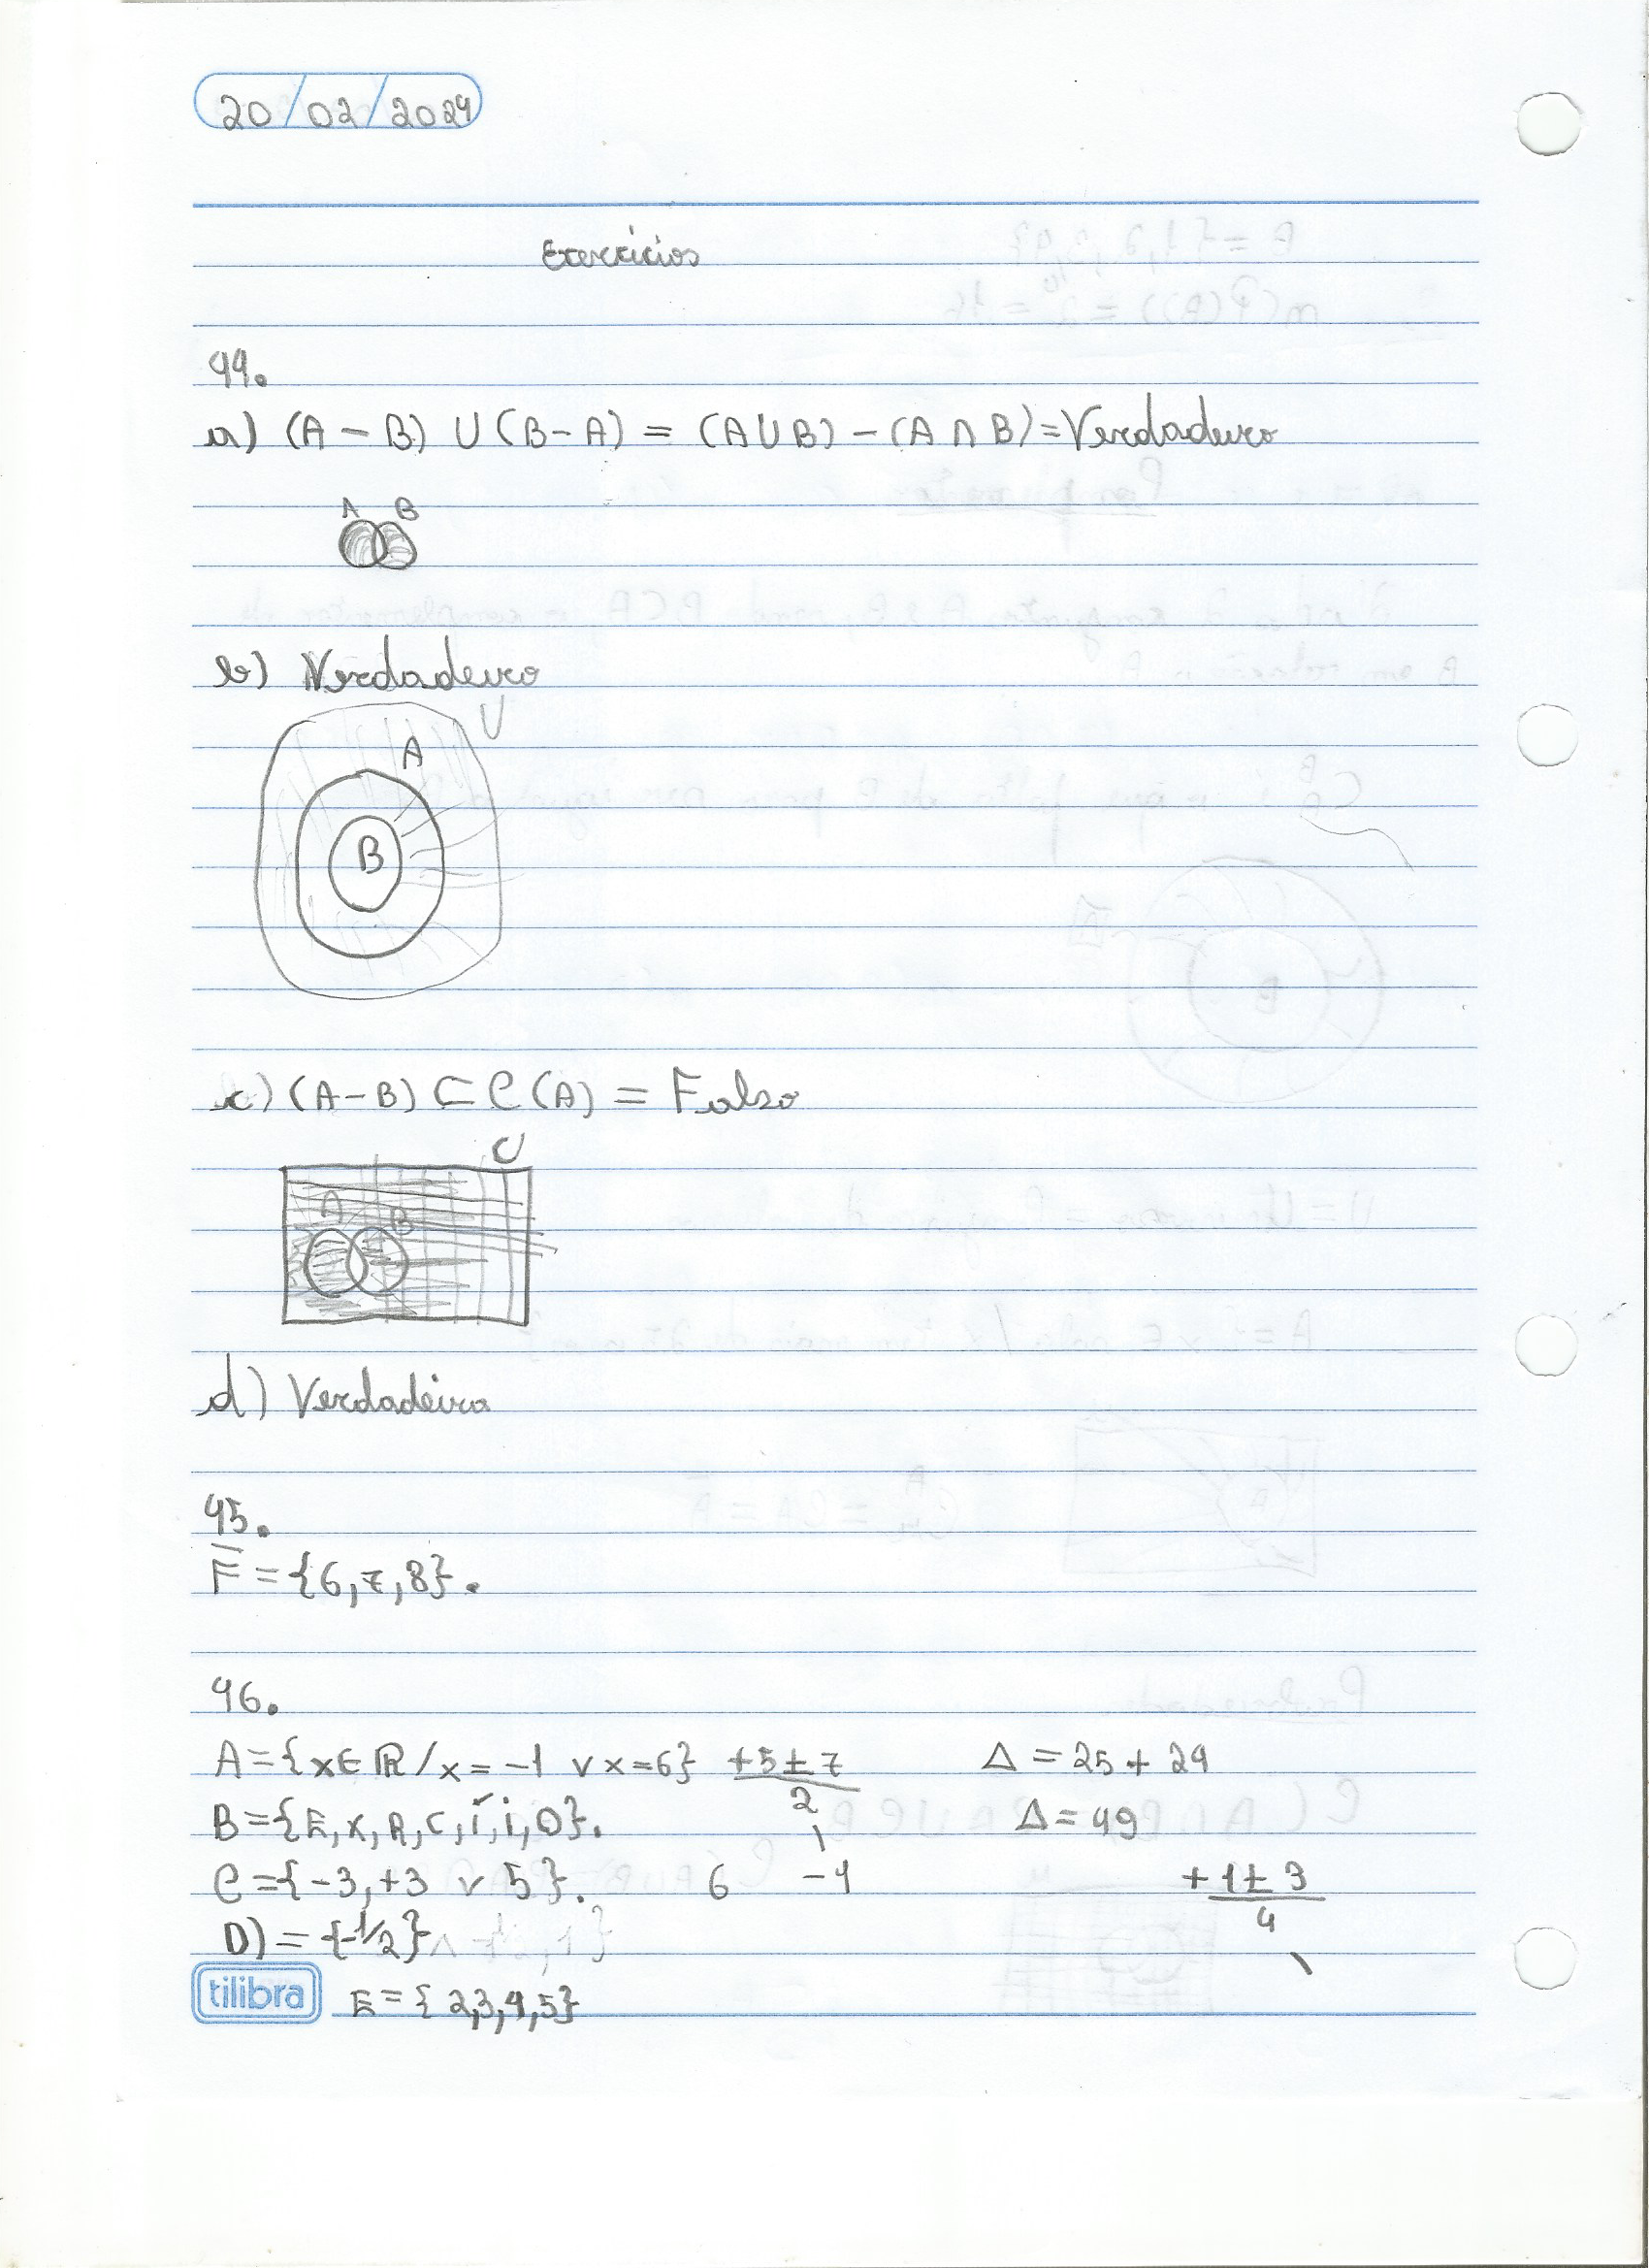 20/02/2024
Exercícios
44.
a) (A - B) U (B - A) = (A U B) - (A ∩ B) = Verdadeiro
A B
b) Verdadeiro
U
A
B
c) (A - B) ⊂ C (A) = Falso
U
A B
d) Verdadeira
45.
F̅ = {6, 7, 8}.
46.
A = {x ∈ ℝ / x = -1 v x = 6} +5 ± 7 Δ = 25 + 24
2
B = {E, x, R, C, í, i, O}. Δ = 49
C = {-3, +3 v 5}. 6 -1 +1 ± 3
4
D) = {-1/2}
tilibra E = {2,3,4,5}